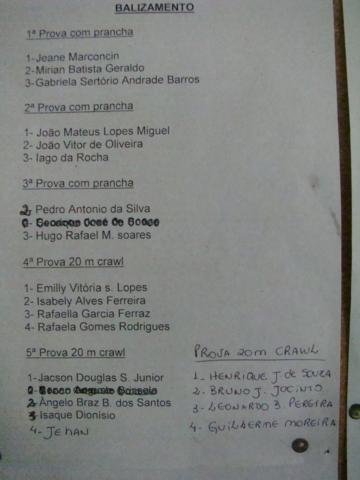 BALIZAMENTO
1ª Prova com prancha
1-Jeane Marconcin
2- Mirian Batista Geraldo
3-Gabriela Sertório Andrade Barros
2ª Prova com prancha
1- João Mateus Lopes Miguel
2- João Vitor de Oliveira
3- Iago da Rocha
3ª Prova com prancha
2, Pedro Antonio da Silva
3- Hugo Rafael M. soares
4ª Prova 20 m crawl
1- Emilly Vitória s. Lopes
2- Isabely Alves Ferreira
3- Rafaella Garcia Ferraz
4- Rafaela Gomes Rodrigues
5ª Prova 20 m crawl
1-Jacson Douglas S. Junior
2 Angelo Braz B. dos Santos
3 Isaque Dionísio
4- JEHAN
PROVA 20m CRAWL
1- HENRIQUE J. de SOUZA
2- BRUNO J. JOCINTO
3- LEONARDO B. PEREIRA
4- GUILHERME MOREIRA